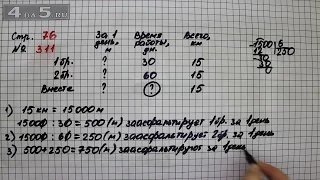 4 на 5.ru
Стр. 76
№ 311
За 1 день, м
Время работы, дн.
Всего, км
1 бр. ? 30 15
2 бр. ? 60 15
Вместе ? 15
1500 | 6
12 250
30
30
0
1) 15 км = 15000 м
15000 : 30 = 500 (м) заасфальтирует 1 бр. за 1 день
2) 15000 : 60 = 250 (м) заасфальтирует 2 бр. за 1 день
3) 500 + 250 = 750 (м) заасфальтируют за 1 день